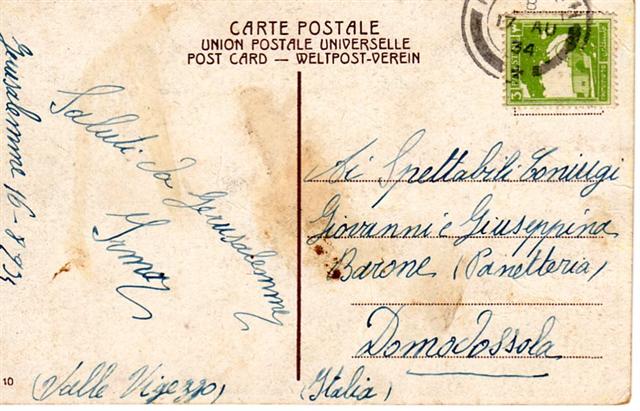 CARTE POSTALE
UNION POSTALE UNIVERSELLE
POST CARD — WELTPOST-VEREIN
8
17 AU
34
3
Jerusalemme 16-8-934
Saluti da Gerusalemme
Irma
Ai Spettabili Coniugi
Giovanni e Giuseppina
Barone (Panetteria)
Domodossola
(Valle Vigezzo)
(Italia)
10